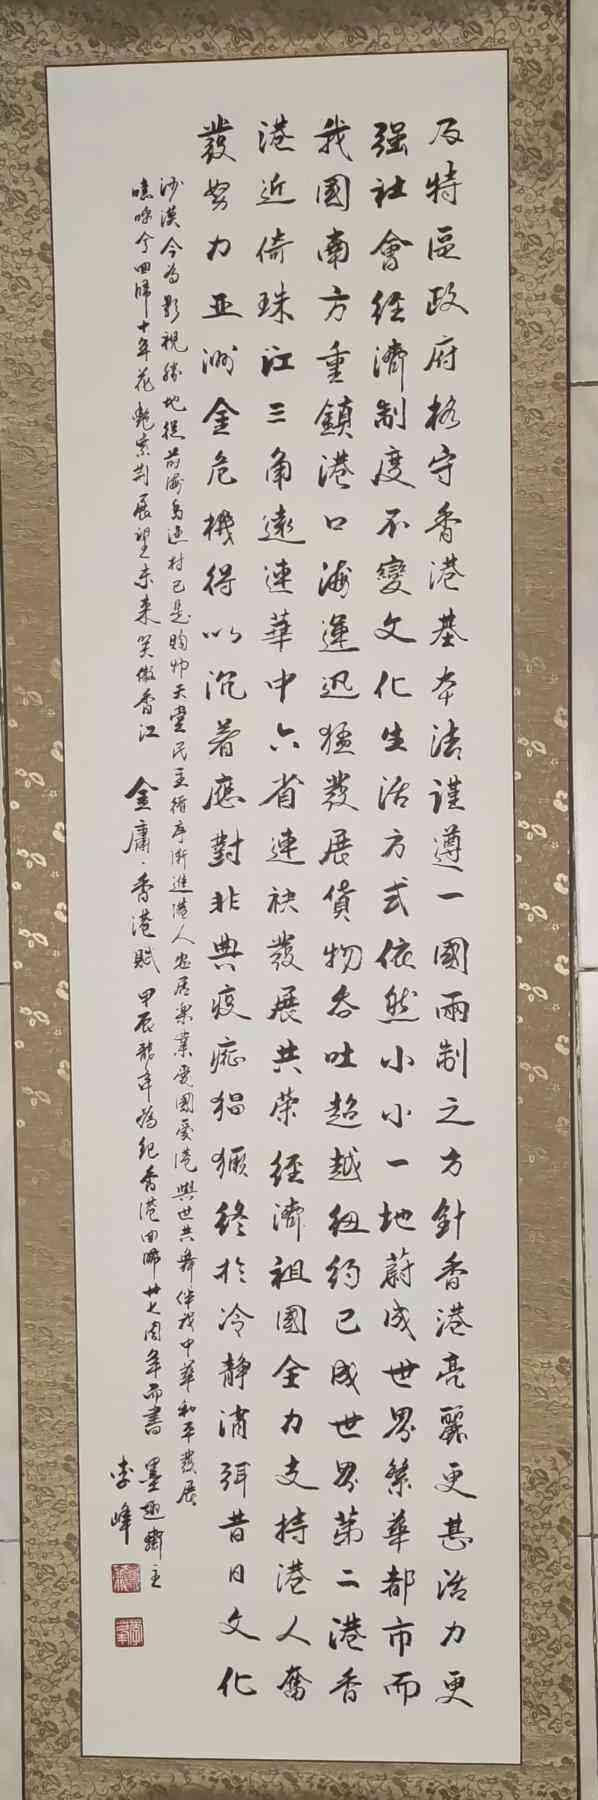 及特區政府恪守香港基本法謹遵一國兩制之方針香港亮麗更甚活力更
强社會經濟制度不變文化生活方式依然小小一地蔚成世界繁華都市而
我國南方重鎮港口海運迅猛發展貨物吞吐超越紐約已成世界第二港香
港近倚珠江三角遠連華中六省連袂發展共荣經濟祖國全力支持港人奮
發努力亚洲金危機得以沉着應對非典疫症猖獗終於冷静消弭昔日文化
沙漠今為影視勝地從前海島漁村已是購物天堂民主循序漸進港人安居樂業愛國愛港與世共舞伴我中華和平發展
嘻呼兮回歸十年花艷紫荆展望未来笑傲香江
金庸·香港賦 甲辰龍年為紀香港回歸廿七周年而書 墨趣齋主
李峰